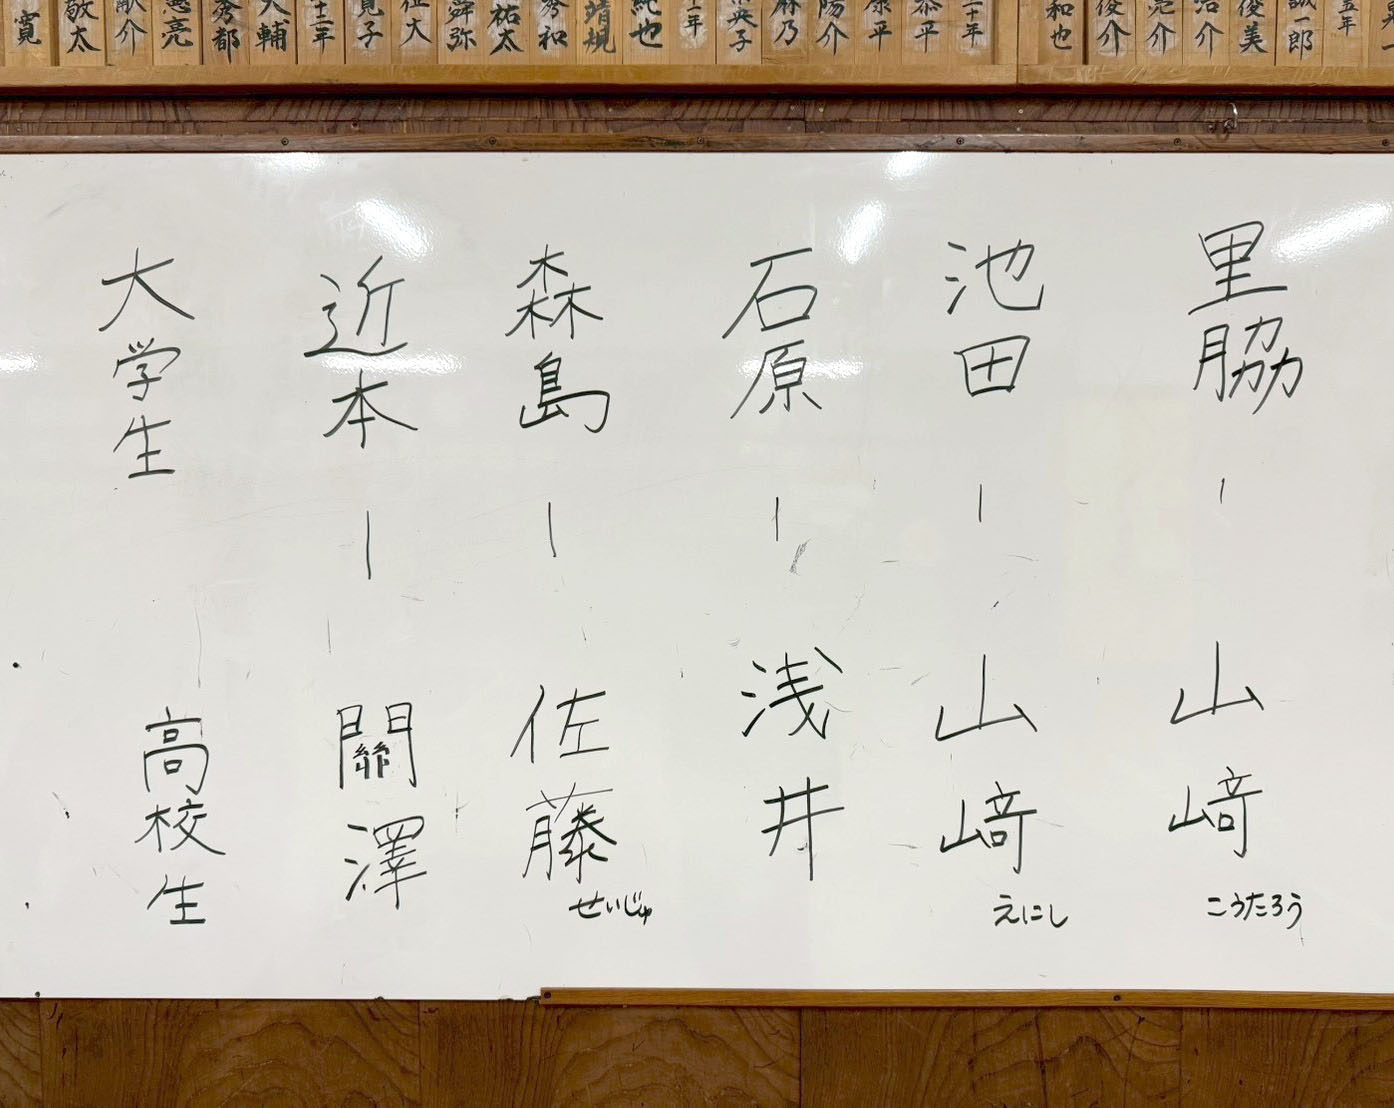 里脇 - 山﨑 こうたろう
池田 - 山﨑 えにし
石原 - 浅井
森島 - 佐藤 せいじゅ
近本 - 關澤
大学生 高校生
一郎
俊美
浩介
亮介
俊介
和也
二十年
恭平
康平
陽介
麻乃
英子
純也
靖規
秀和
祐太
舜弥
大輔
秀都
憲亮
献介
敬太
寛